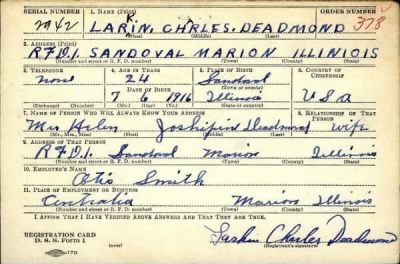 SERIAL NUMBER 1. NAME (Print) ORDER NUMBER
2942 LARIN, CHRLES, DEADMOND 378
(First) (Middle) (Last)
2. ADDRESS (Print)
R.F.D.1. SANDOVAL MARION ILLINIOIS
(Number and street or R. F. D. number) (Town) (County) (State)
3. TELEPHONE 4. AGE IN YEARS 5. PLACE OF BIRTH 6. COUNTRY OF CITIZENSHIP
none 24 Sandoval
(Town or county)
DATE OF BIRTH
7 6 1916 Illinois U S A
(Exchange) (Number) (Mo.) (Day) (Yr.) (State or country)
7. NAME OF PERSON WHO WILL ALWAYS KNOW YOUR ADDRESS 8. RELATIONSHIP OF THAT PERSON
Mrs Deadmond wife
(Mr., Mrs., Miss) (First) (Middle) (Last)
9. ADDRESS OF THAT PERSON
R.F.D.1. Sandoval Marion Illinois
(Number and street or R. F. D. number) (Town) (County) (State)
10. EMPLOYER'S NAME
Otis Smith
11. PLACE OF EMPLOYMENT OR BUSINESS
Centralia Marion Illinois
(Number and street or R. F. D. number) (Town) (County) (State)
I AFFIRM THAT I HAVE VERIFIED ABOVE ANSWERS AND THAT THEY ARE TRUE.
REGISTRATION CARD
D. S. S. Form 1 Charles Deadmond
(Registrant's signature)